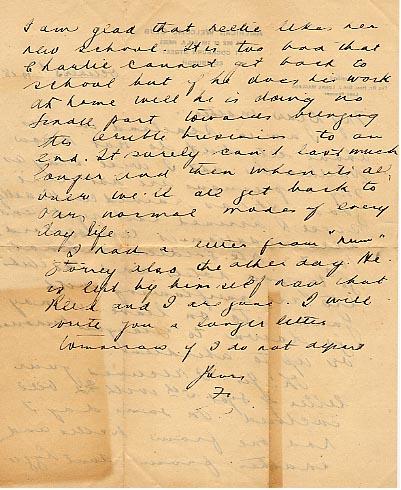 I am glad that Nellie likes her
new school. It is too bad that
Charlie cannot get back to
school but if he does his work
at home well he is doing no
small part towards bringing
this terrible business to an
end. It surely can't last much
longer and then when it's all
over we'll all get back to
our normal modes of every
day life.
I had a letter from
Storey also the other day. He
is left by himself now that
Reed and I are gone. I will
write you a longer letter
tomorrow if I do not depart
Yours
F.